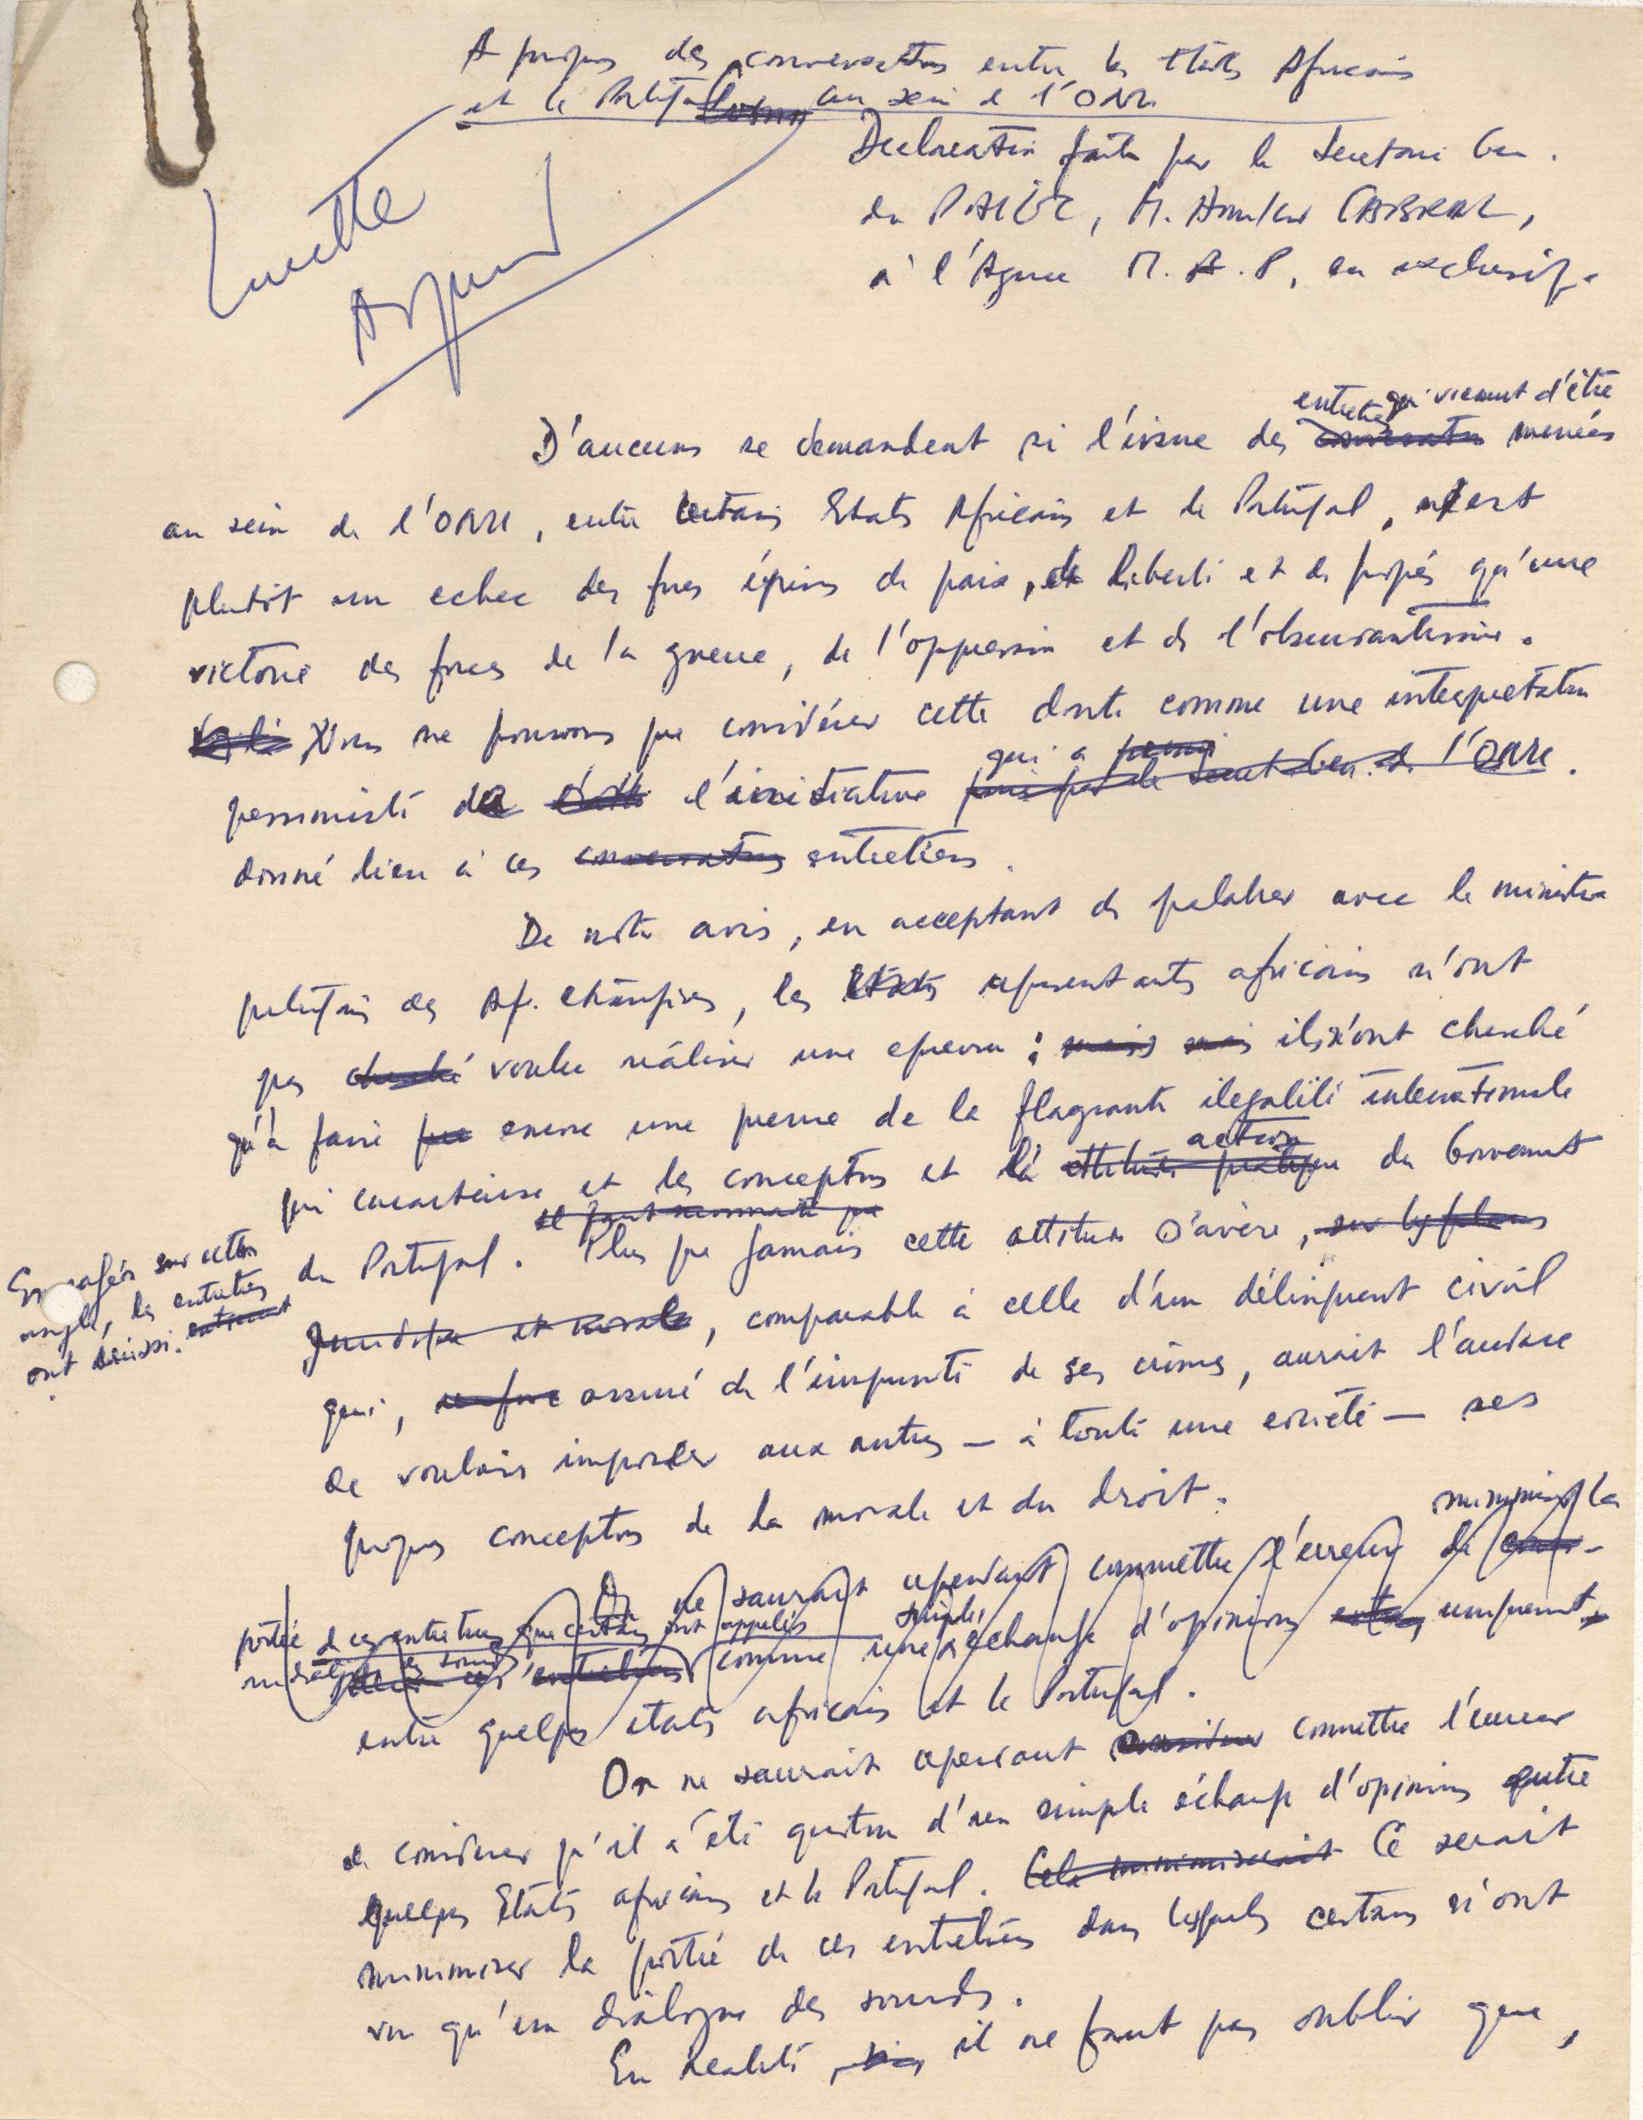 A propos des conversations entre les Etats Africains
et le Portugal au sein de l'ONU
Declaration faite par le Secretaire Gen.
du PAIGC, M. Amilcar CABRAL,
à l'Agence M.A.P, en exclusif.
Lucette
D'aucuns se demandent si l'issue des entretiens qui viennent d'être menés
au sein de l'ONU, entre certains Etats Africains et le Portugal, n'est
plutôt un echec des forces éprises de paix, de liberté et de progrès qu'une
victoire des forces de la guerre, de l'oppression et de l'obscurantisme.
Nous ne pouvons pas considérer cette doute comme une interpretation
pessimiste de l'initiative qui a
donné lieu à ces conversations entretiens.
De notre avis, en acceptant de palabrer avec le ministre
portugais des Af. Etrangères, les Etats representants africains n'ont
pas cherché voulu réaliser une epreuve : mais ils n'ont cherché
qu'à faire encore une preuve de la flagrante ilegalité internationale
qui caracterise et les conceptions et la attitude pratique action du Gouvernement
du Portugal. il faut reconnaitre que Plus que jamais cette attitude s'avère, sur les plans
Engagés sur cette
angle, les entretiens
ont réussi.
juridique et morale, comparable à celle d'un délinquant civil
qui, assuré de l'impunité de ses crimes, aurait l'audace
de vouloir imposer aux autres — à toute une societé — ses
propres conceptions de la morale et du droit.
On ne saurait cependant commettre l'erreur de minimiser la
portée de ces entretiens que certains ont appelés
comme une simple echange d'opinions uniquement
entre quelques etats africains et le Portugal.
On ne saurait cependant considerer commettre l'erreur
de considerer qu'il a été question d'un simple échange d'opinions entre
quelques Etats africains et le Portugal. Cela minimiserait Ce serait
minimiser la portée de ces entretiens dans lesquels certains n'ont
vu qu'un dialogue des sourds.
En realité, il ne faut pas oublier que,